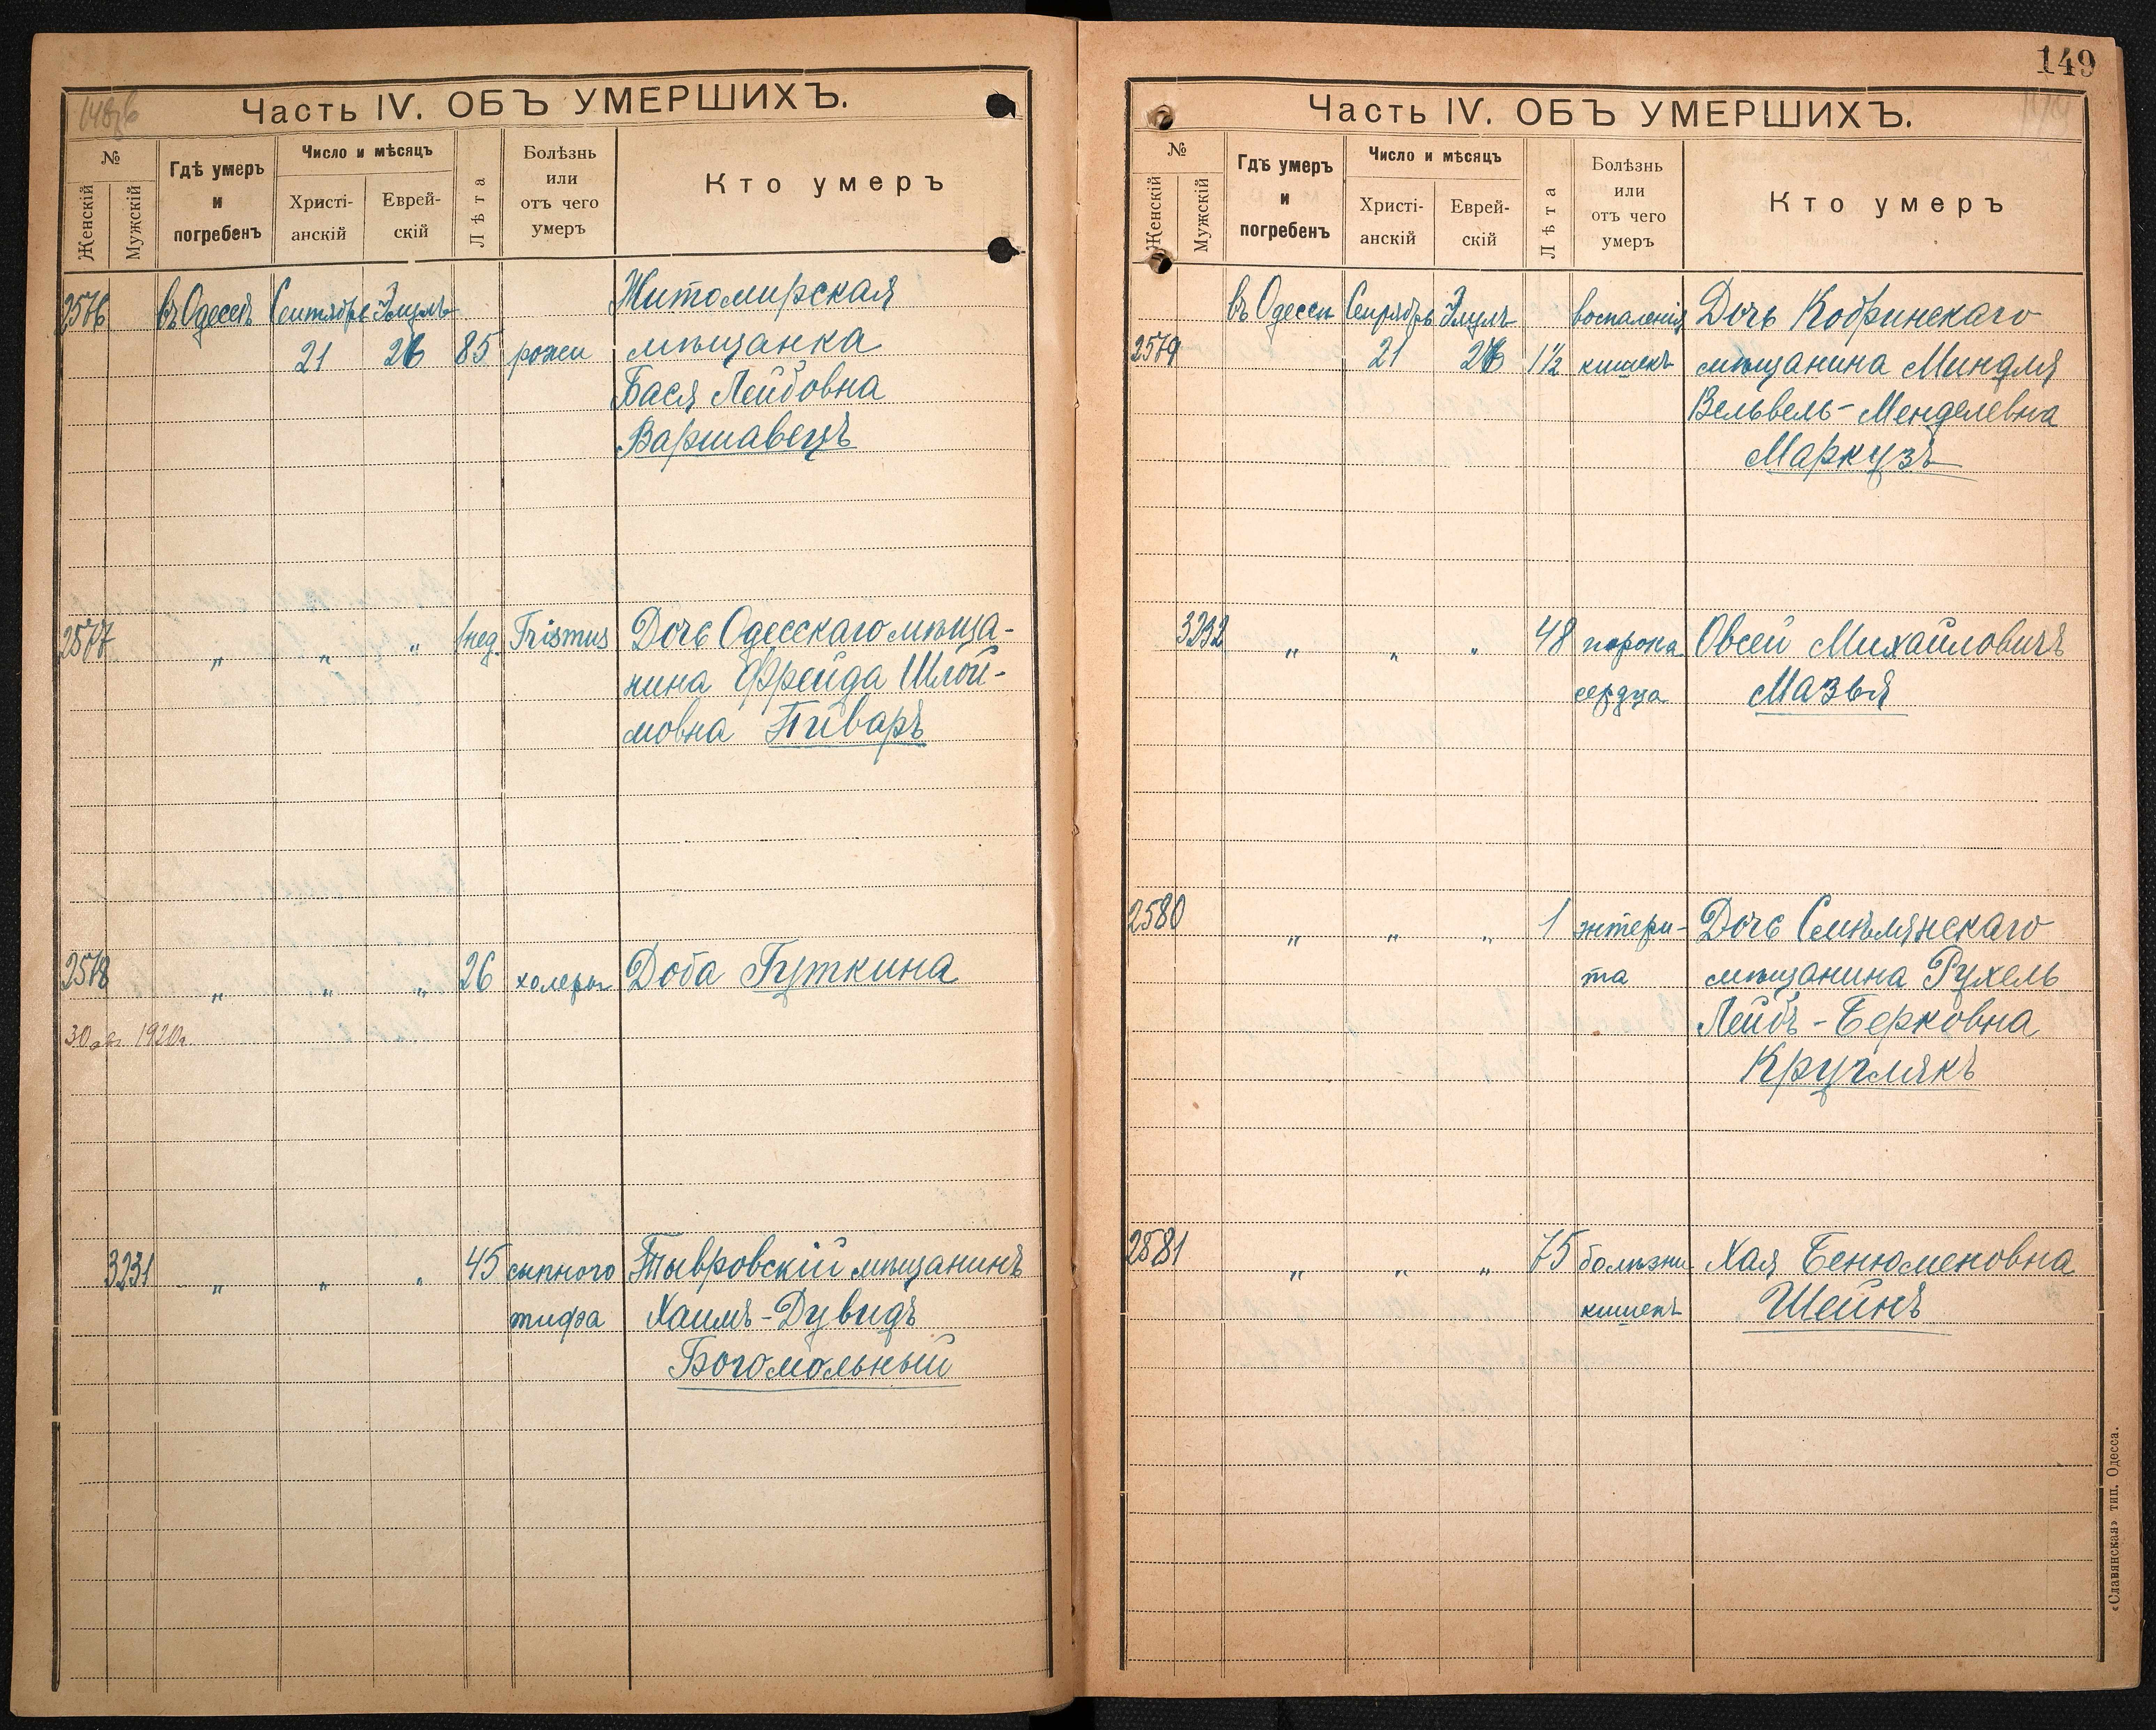 148об
Часть IV. ОБЪ УМЕРШИХЪ.
№
Женскій
Мужскій
Гдѣ умеръ
и
погребенъ
Число и мѣсяцъ
Христі-
анскій
Еврей-
скій
Лѣта
Болѣзнь
или
отъ чего
умеръ
Кто умеръ
2576 въ Одессѣ Сентябрь Элулъ Житомирская
21 26 85 рожи мѣщанка
Бася Лейбовна
Варшавецъ
2577 „ „ „ 1 нед. Trismus Дочь Одесскаго мѣща-
нина Фрейда Шлой-
мовна Пиваръ
2578 „ „ „ 26 холеры Доба Гуткина
30 1920г.
3231 „ „ „ 45 сыпного Тывровскій мѣщанинъ
тифа Хаимъ-Дувидъ
Богомольный
149
Часть IV. ОБЪ УМЕРШИХЪ.
№
Женскій
Мужскій
Гдѣ умеръ
и
погребенъ
Число и мѣсяцъ
Христі-
анскій
Еврей-
скій
Лѣта
Болѣзнь
или
отъ чего
умеръ
Кто умеръ
въ Одессѣ Сенрябрь Элулъ воспаленія Дочь Кобринскаго
2579 21 26 1½ кишекъ мѣщанина Миндля
Вельвель-Менделевна
Маркузъ
3232 „ „ „ 48 порока Овсей Михайловичъ
сердца Мазья
2580 „ „ „ 1 энтери- Дочь Смѣлянскаго
та мѣщанина Рухель
Лейбъ-Берковна
Круглякъ
2581 „ „ „ 75 болѣзни Хая Бенюменовна
кишекъ Шейнъ
«Славянская» тип. Одесса.